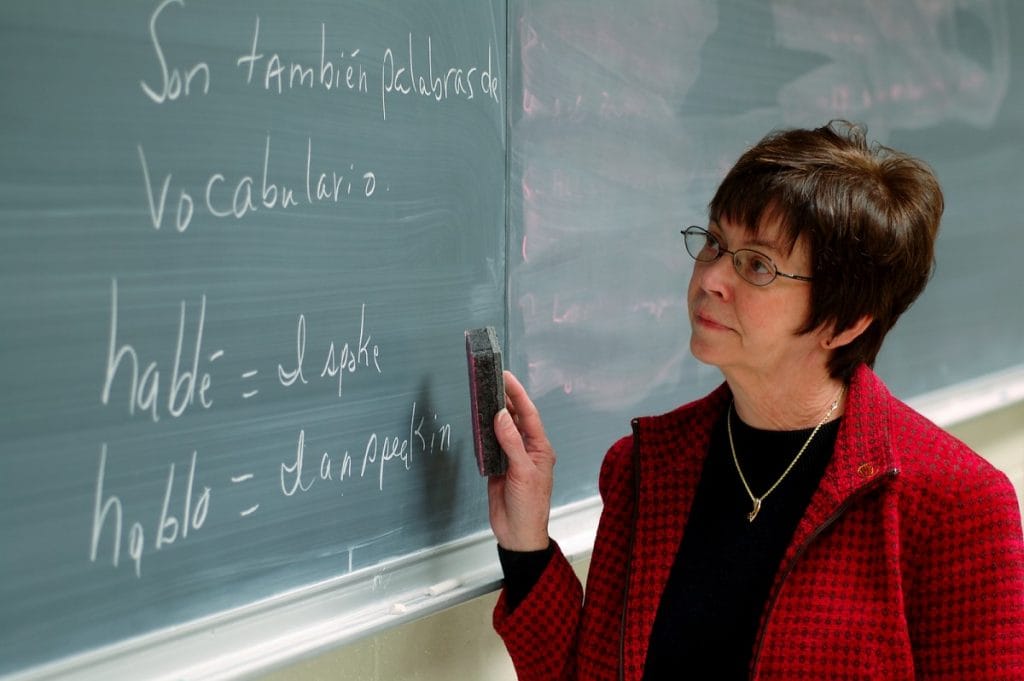 Son también palabras de
Vocabulario.
hablé = I spoke
hablo = I an speakin